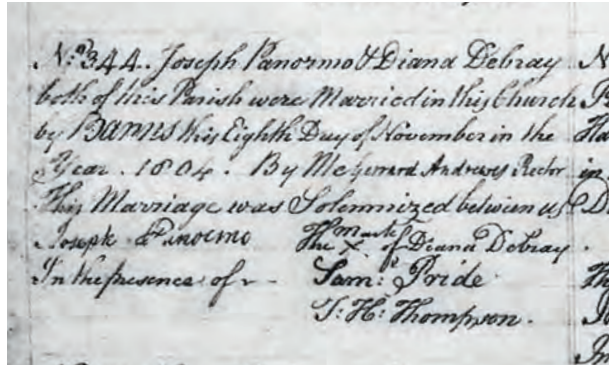 No. 344. Joseph Panormo & Diana Debray
both of this Parish were Married in this Church
by BANNS this Eighth Day of November in the
Year . 1804 . By Me Gerrard Andrewes Rector
This Marriage was Solemnized between us
Joseph Panormo The X mark of Diana Debray
In the presence of Sam: Pride
T: H: Thompson.